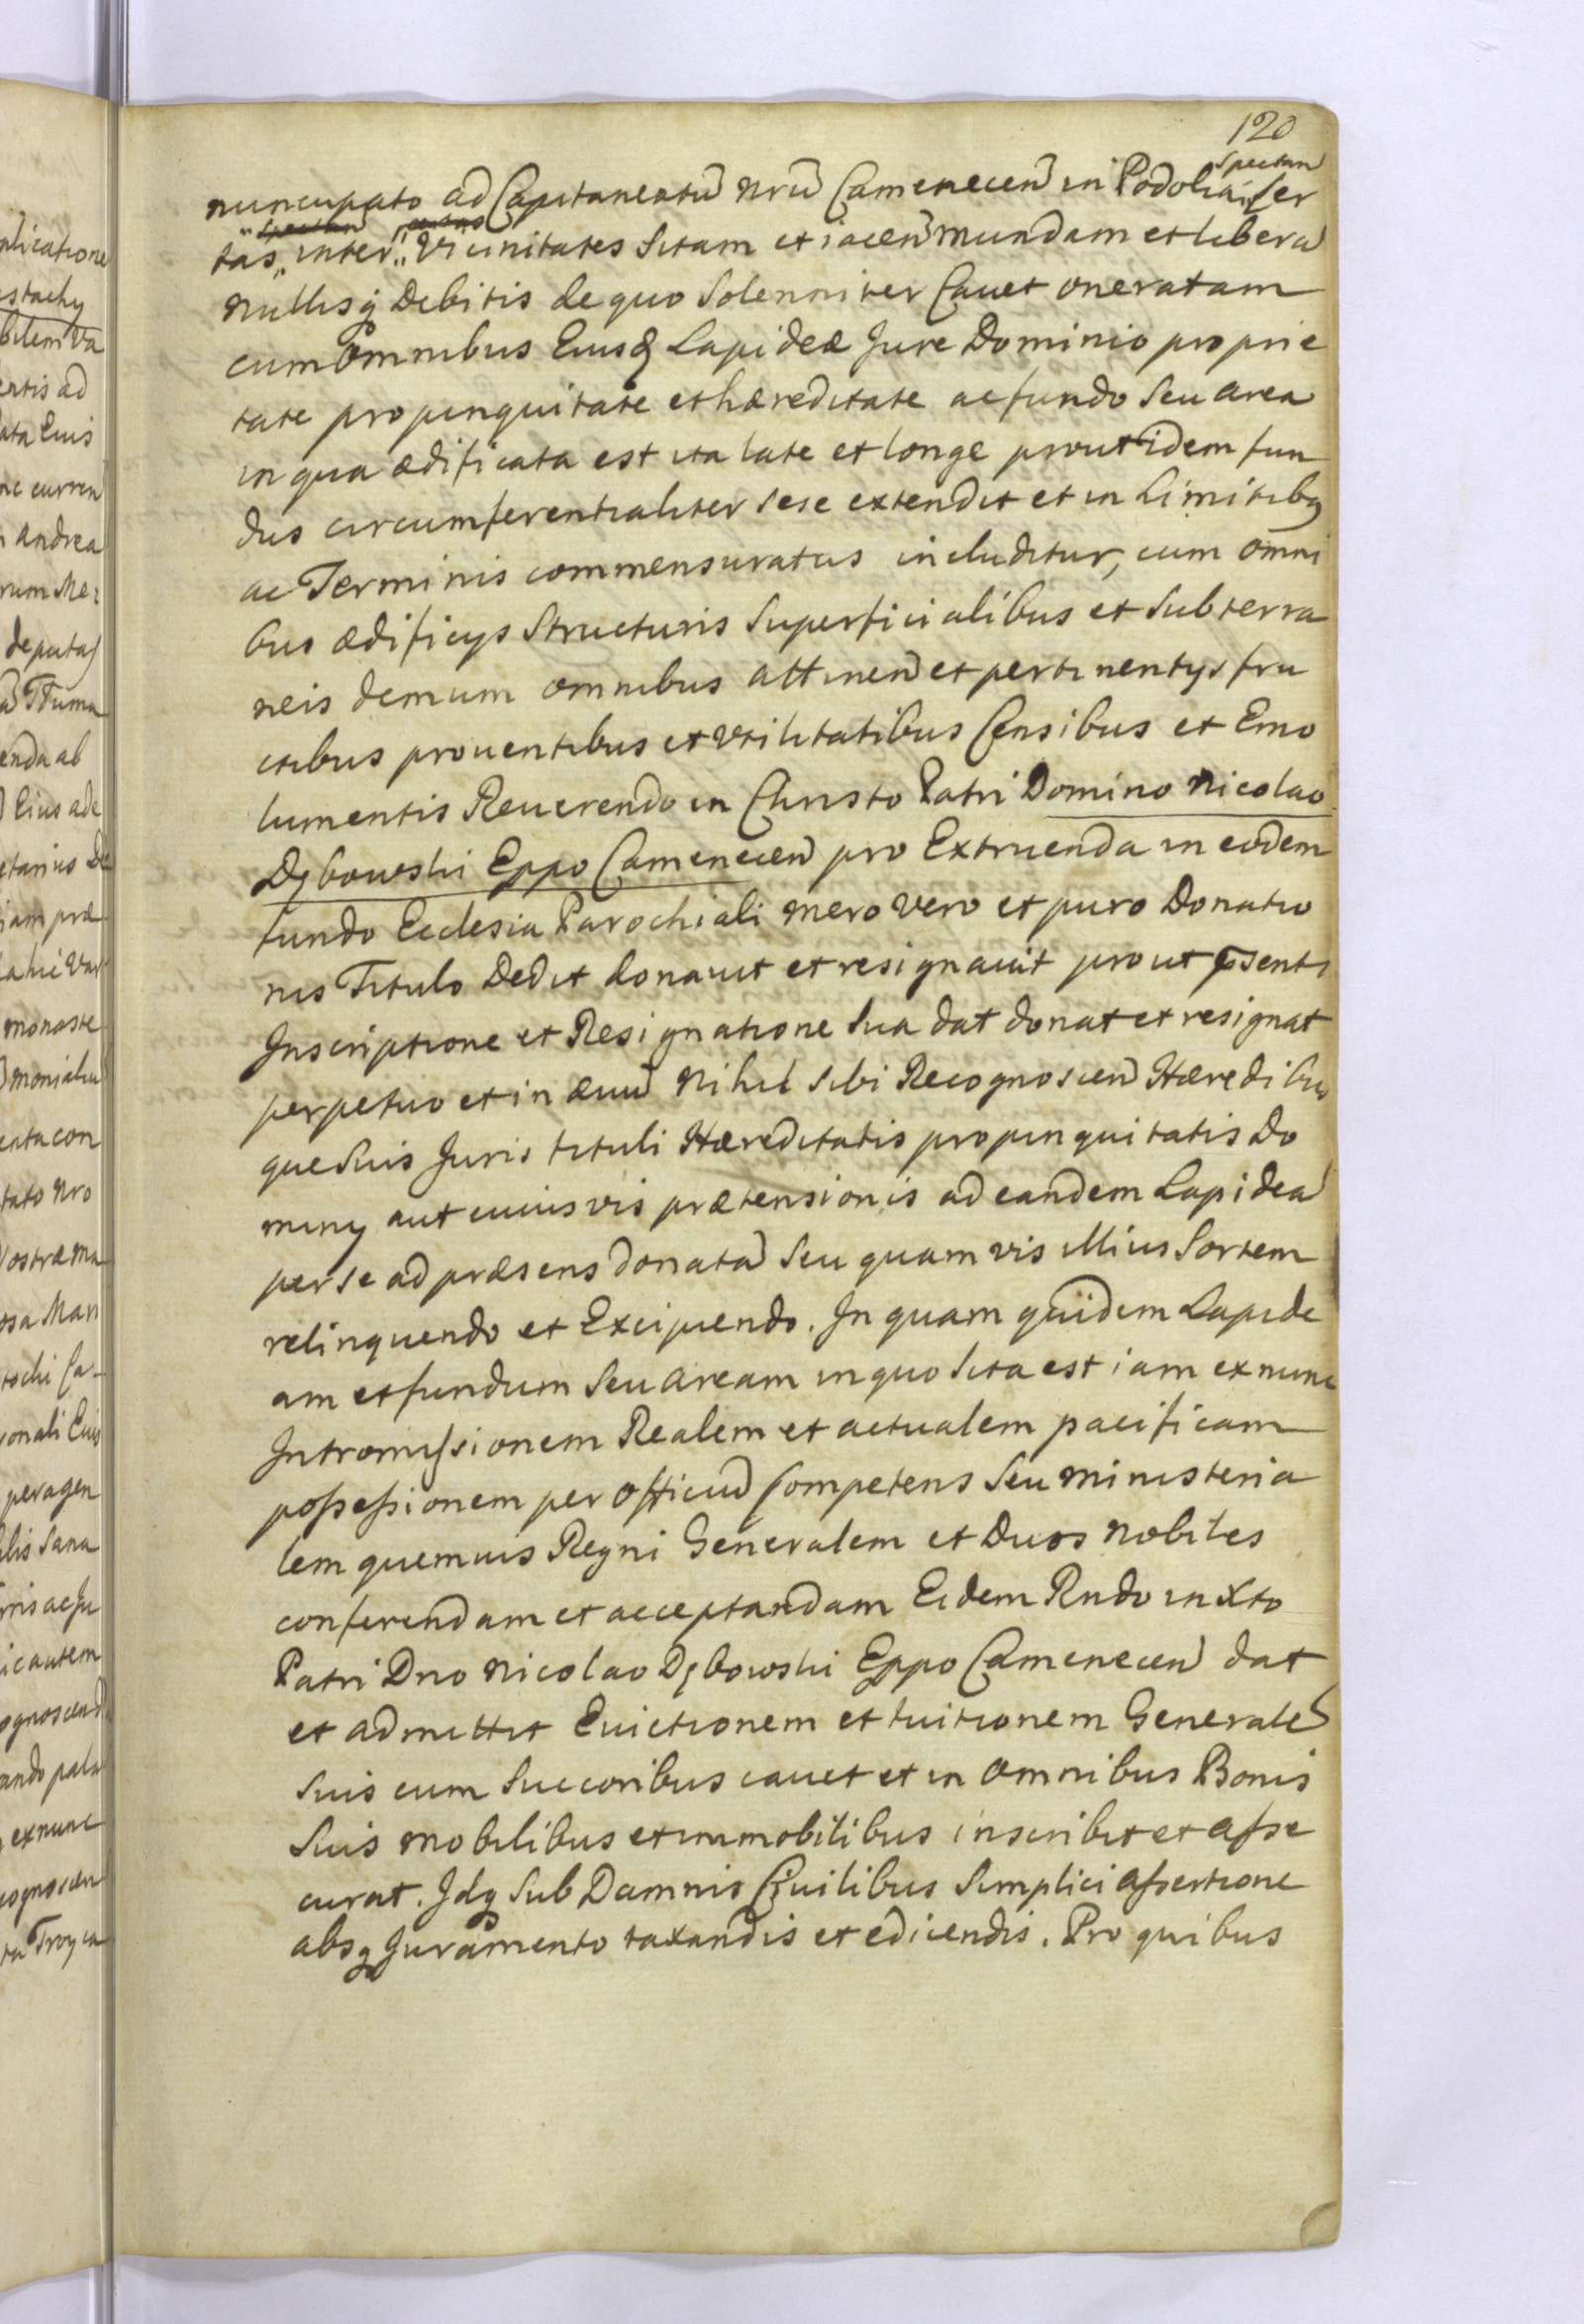 120
spectan
nuncupato ad Capitaneatū nrū Camenecen̄ in Podolia cer
tas inter Vicinitates sitam et iacen̄ mundam et liberā
nullisq̨ Debitis de quo Solenniter Cauet oneratam
cum omnibus Eiusd Lapideæ Jure Dominio proprie
tate propinquitate et hæreditate ac fundo seu area
in qua ædificata est ita late et longe prout idem fun
dus circumferentialiter sese extendit et in Limitibq
ac Terminis commensuratus includitur, cum omni
bus ædificijs Structuris Superficialibus et Subterra
neis demum omnibus attinen̄ et pertinentijs fru
ctibus prouentibus et vtilitatibus Censibus et Emo
lumentis Reuerendo in Christo Patri Domino Nicolao
Dębowski Eppo Camenecen̄ pro Extruenda in eodem
fundo Ecclesia Parochiali mero vero et puro Donatio
nis Titulo Dedit donauit et resignauit prout p̄senti
Inscriptione et Resignatione sua dat donat et resignat
perpetuo et in æuū Nihil sibi Recognoscen̄ Hæredibus
que suis Juris tituli Hæreditatis propinquitatis Do
minij aut cuiusvis prætensionis ad eandem Lapideā
per se ad præsens donatā seu quamvis illius Sortem
relinquendo et Excipiendo. In quam quidem Lapide
am et fundum seu aream in quo sita est iam ex nunc
Intromissionem Realem et actualem pacificam
possessionem per officiū Competens seu ministeria
lem quemuis Regni Generalem et Duos nobiles
conferendam et acceptandam Eidem Rndo in Xto
Patri Dno Nicolao Dębowski Eppo Camenecen̄ dat
et admittit Euictionem et tuitionem Generalē
suis cum Succoribus cauet et in omnibus Bonis
suis mobilibus et immobilibus inscribit et asse
curat. Idq Sub Damnis Ciuilibus Simplici assertione
absq Juramento taxandis et edicendis. Pro quibus